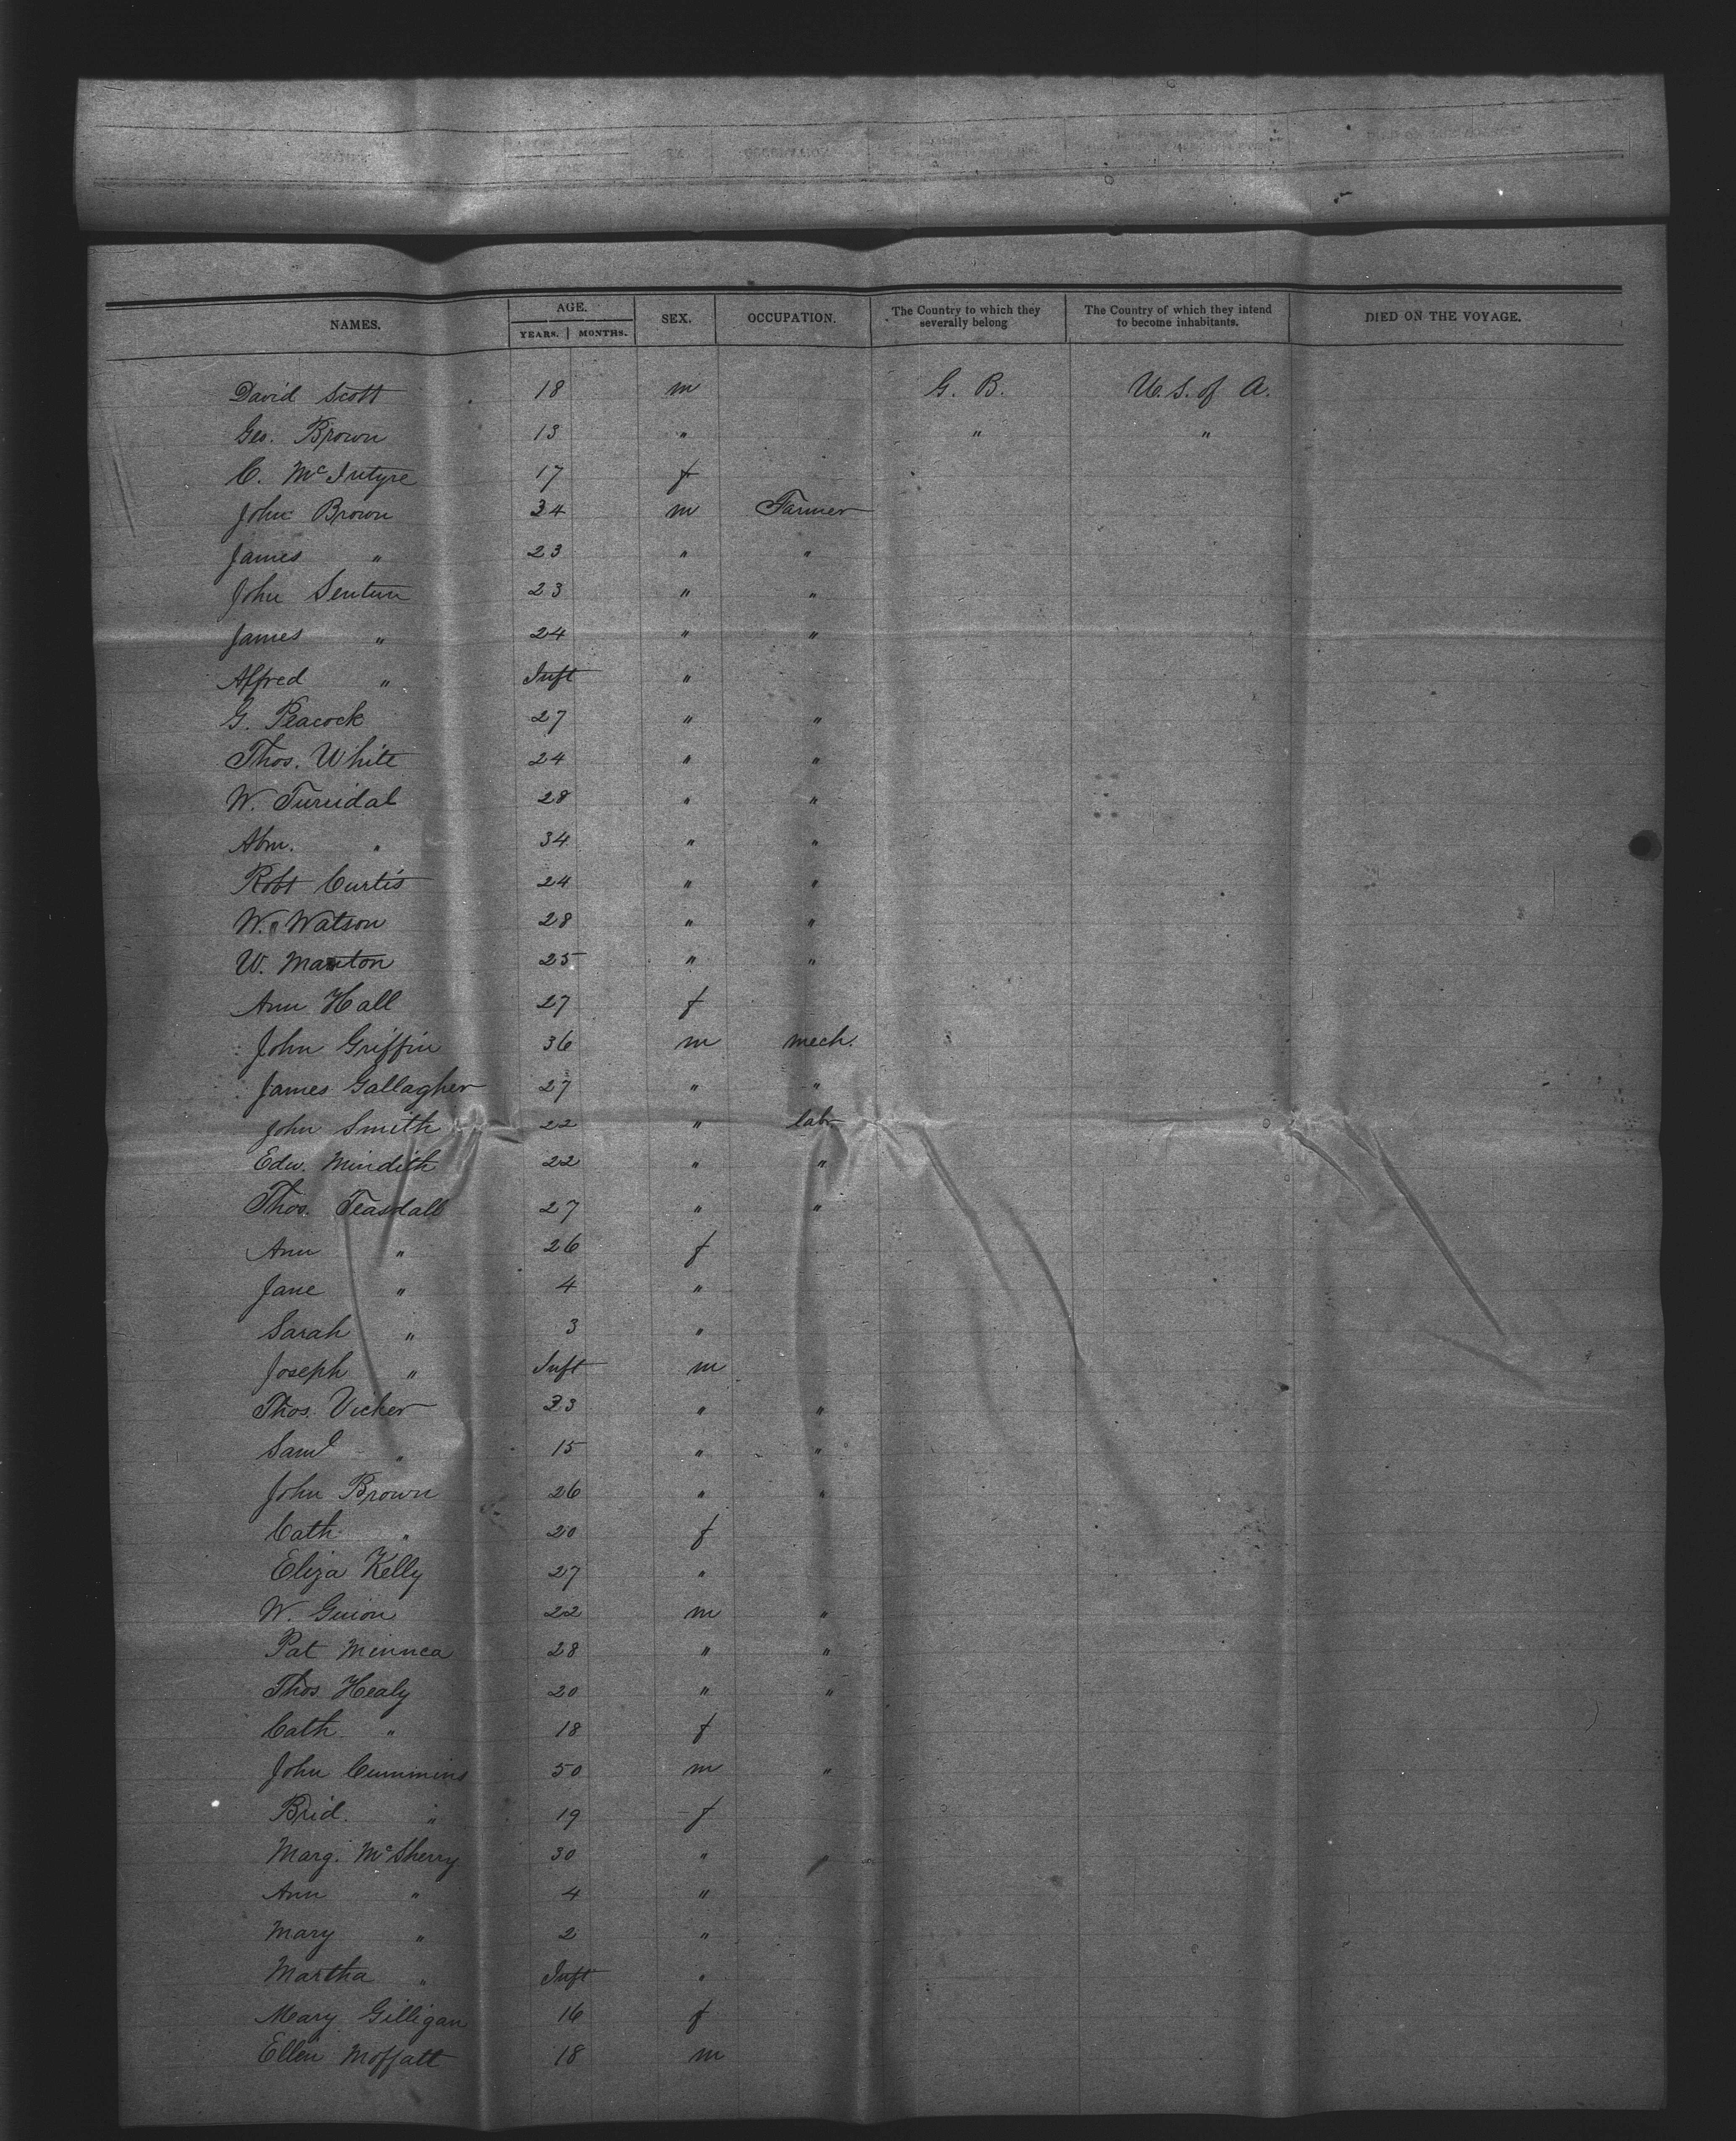 NAMES. AGE. SEX. OCCUPATION. The Country to which they severally belong The Country of which they intend to become inhabitants. DIED ON THE VOYAGE.
YEARS. MONTHS.
David Scott 18 m G. B. U. S. of A.
Geo. Brown 13 " " "
C. McIntyre 17 f
John Brown 34 m Farmer
James " 23 " "
John Sentun 23 " "
James " 24 " "
Alfred " Inft "
G. Peacock 27 " "
Thos. White 24 " "
W. Turridal 28 " "
Abm. " 34 " "
Robt Curtis 24 " "
W. Watson 28 " "
W. Manton 25 " "
Ann Hall 27 f
John Griffin 36 m mech.
James Gallagher 27 " "
John Smith 22 " labr
Edw. Mindith 22 " "
Thos. Teasdall 27 " "
Ann " 26 f
Jane " 4 "
Sarah " 3 "
Joseph " Inft m
Thos. Vicker 33 " "
Saml " 15 " "
John Brown 26 " "
Cath " 20 f
Eliza Kelly 27 "
W. Guion 22 m "
Pat Minnea 28 " "
Thos. Healy 20 " "
Cath " 18 f
John Cummins 50 m "
Brid. " 19 f
Marg. McSherry 30 "
Ann " 4 "
Mary " 2 "
Martha " Inft "
Mary Gilligan 16 f
Ellen Moffatt 18 m